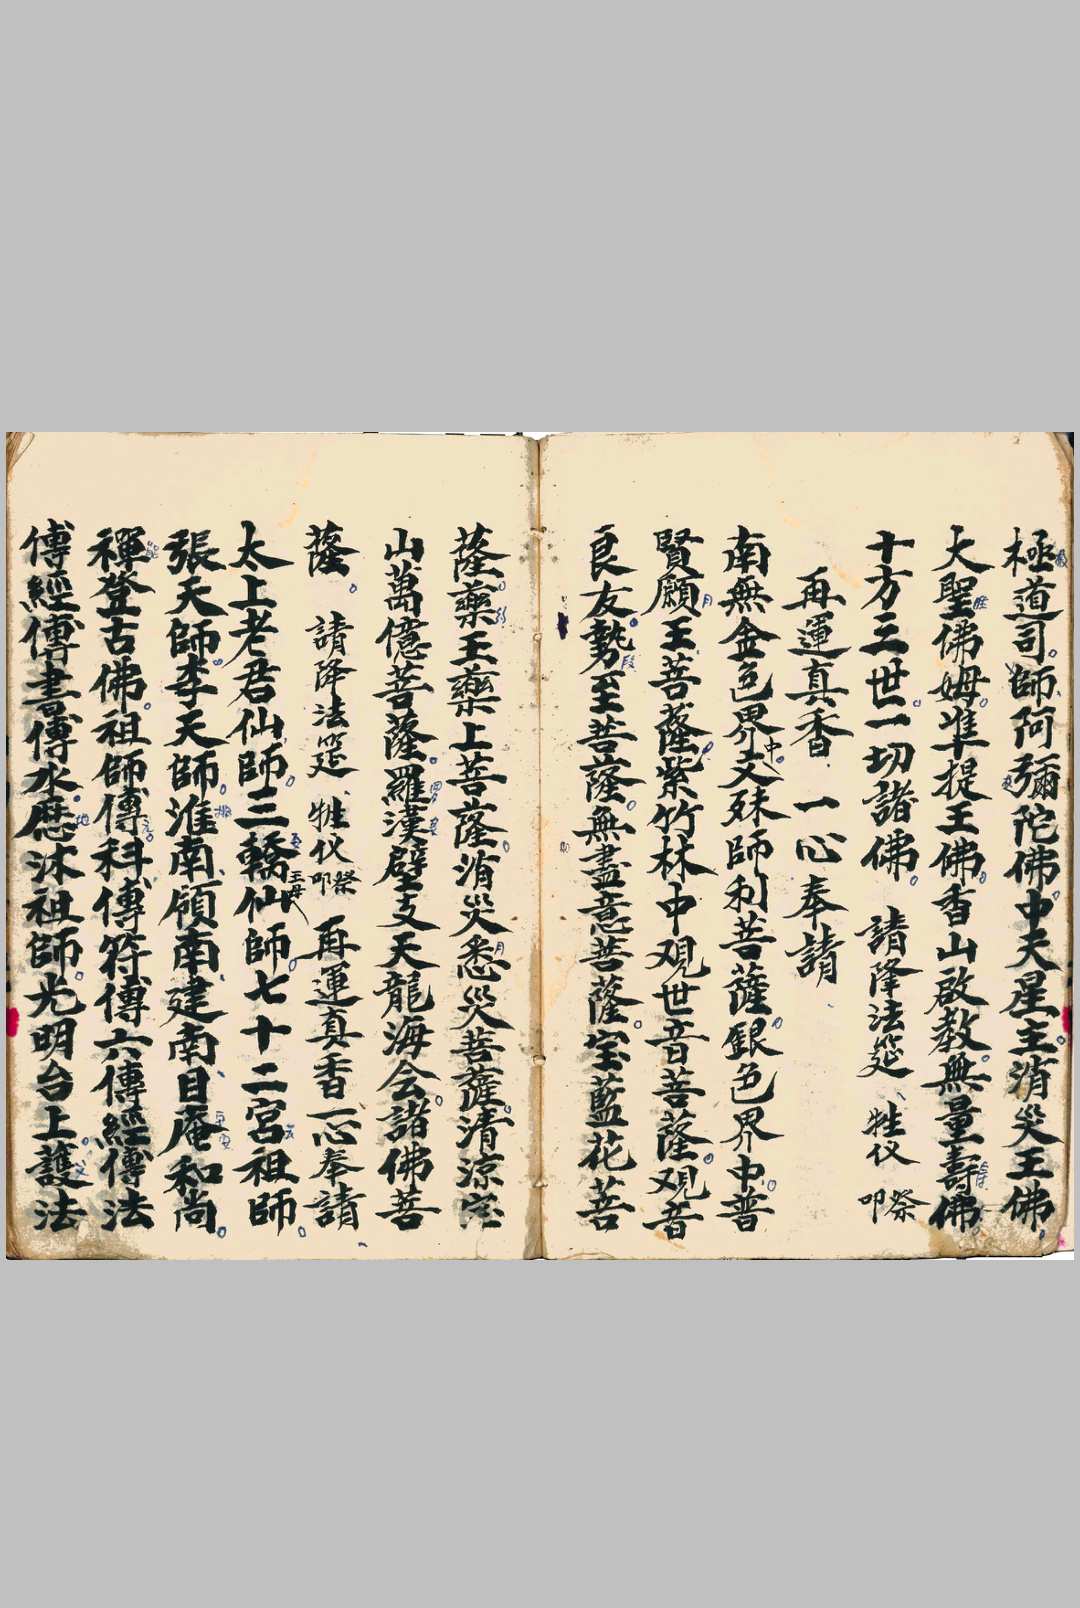 極道司師阿彌陀佛中天星主消災王佛
大聖佛姆準提王佛香山啟教無量壽佛
十方三世一切諸佛 請降法筵 牲仪 叩祭
再運真香 一心奉請
南無金色界中文殊師利菩薩銀色界中普
賢願王菩薩紫竹林中观世音菩薩观音
良友勢至菩薩無盡意菩薩宝藍花菩
薩藥王藥上菩薩消災悉災菩薩清涼宝
山萬億菩薩羅漢辟支天龍海会諸佛菩
薩 請降法筵 牲仪 叩祭 再運真香一心奉請
太上老君仙師三轎王母仙師七十二宮祖師
張天師李天師淮南頋南建南目庵和尚
禪登古佛祖師傳科傳符傳六傳經傳法
傳經傳書傳水應沐祖師光明台上護法